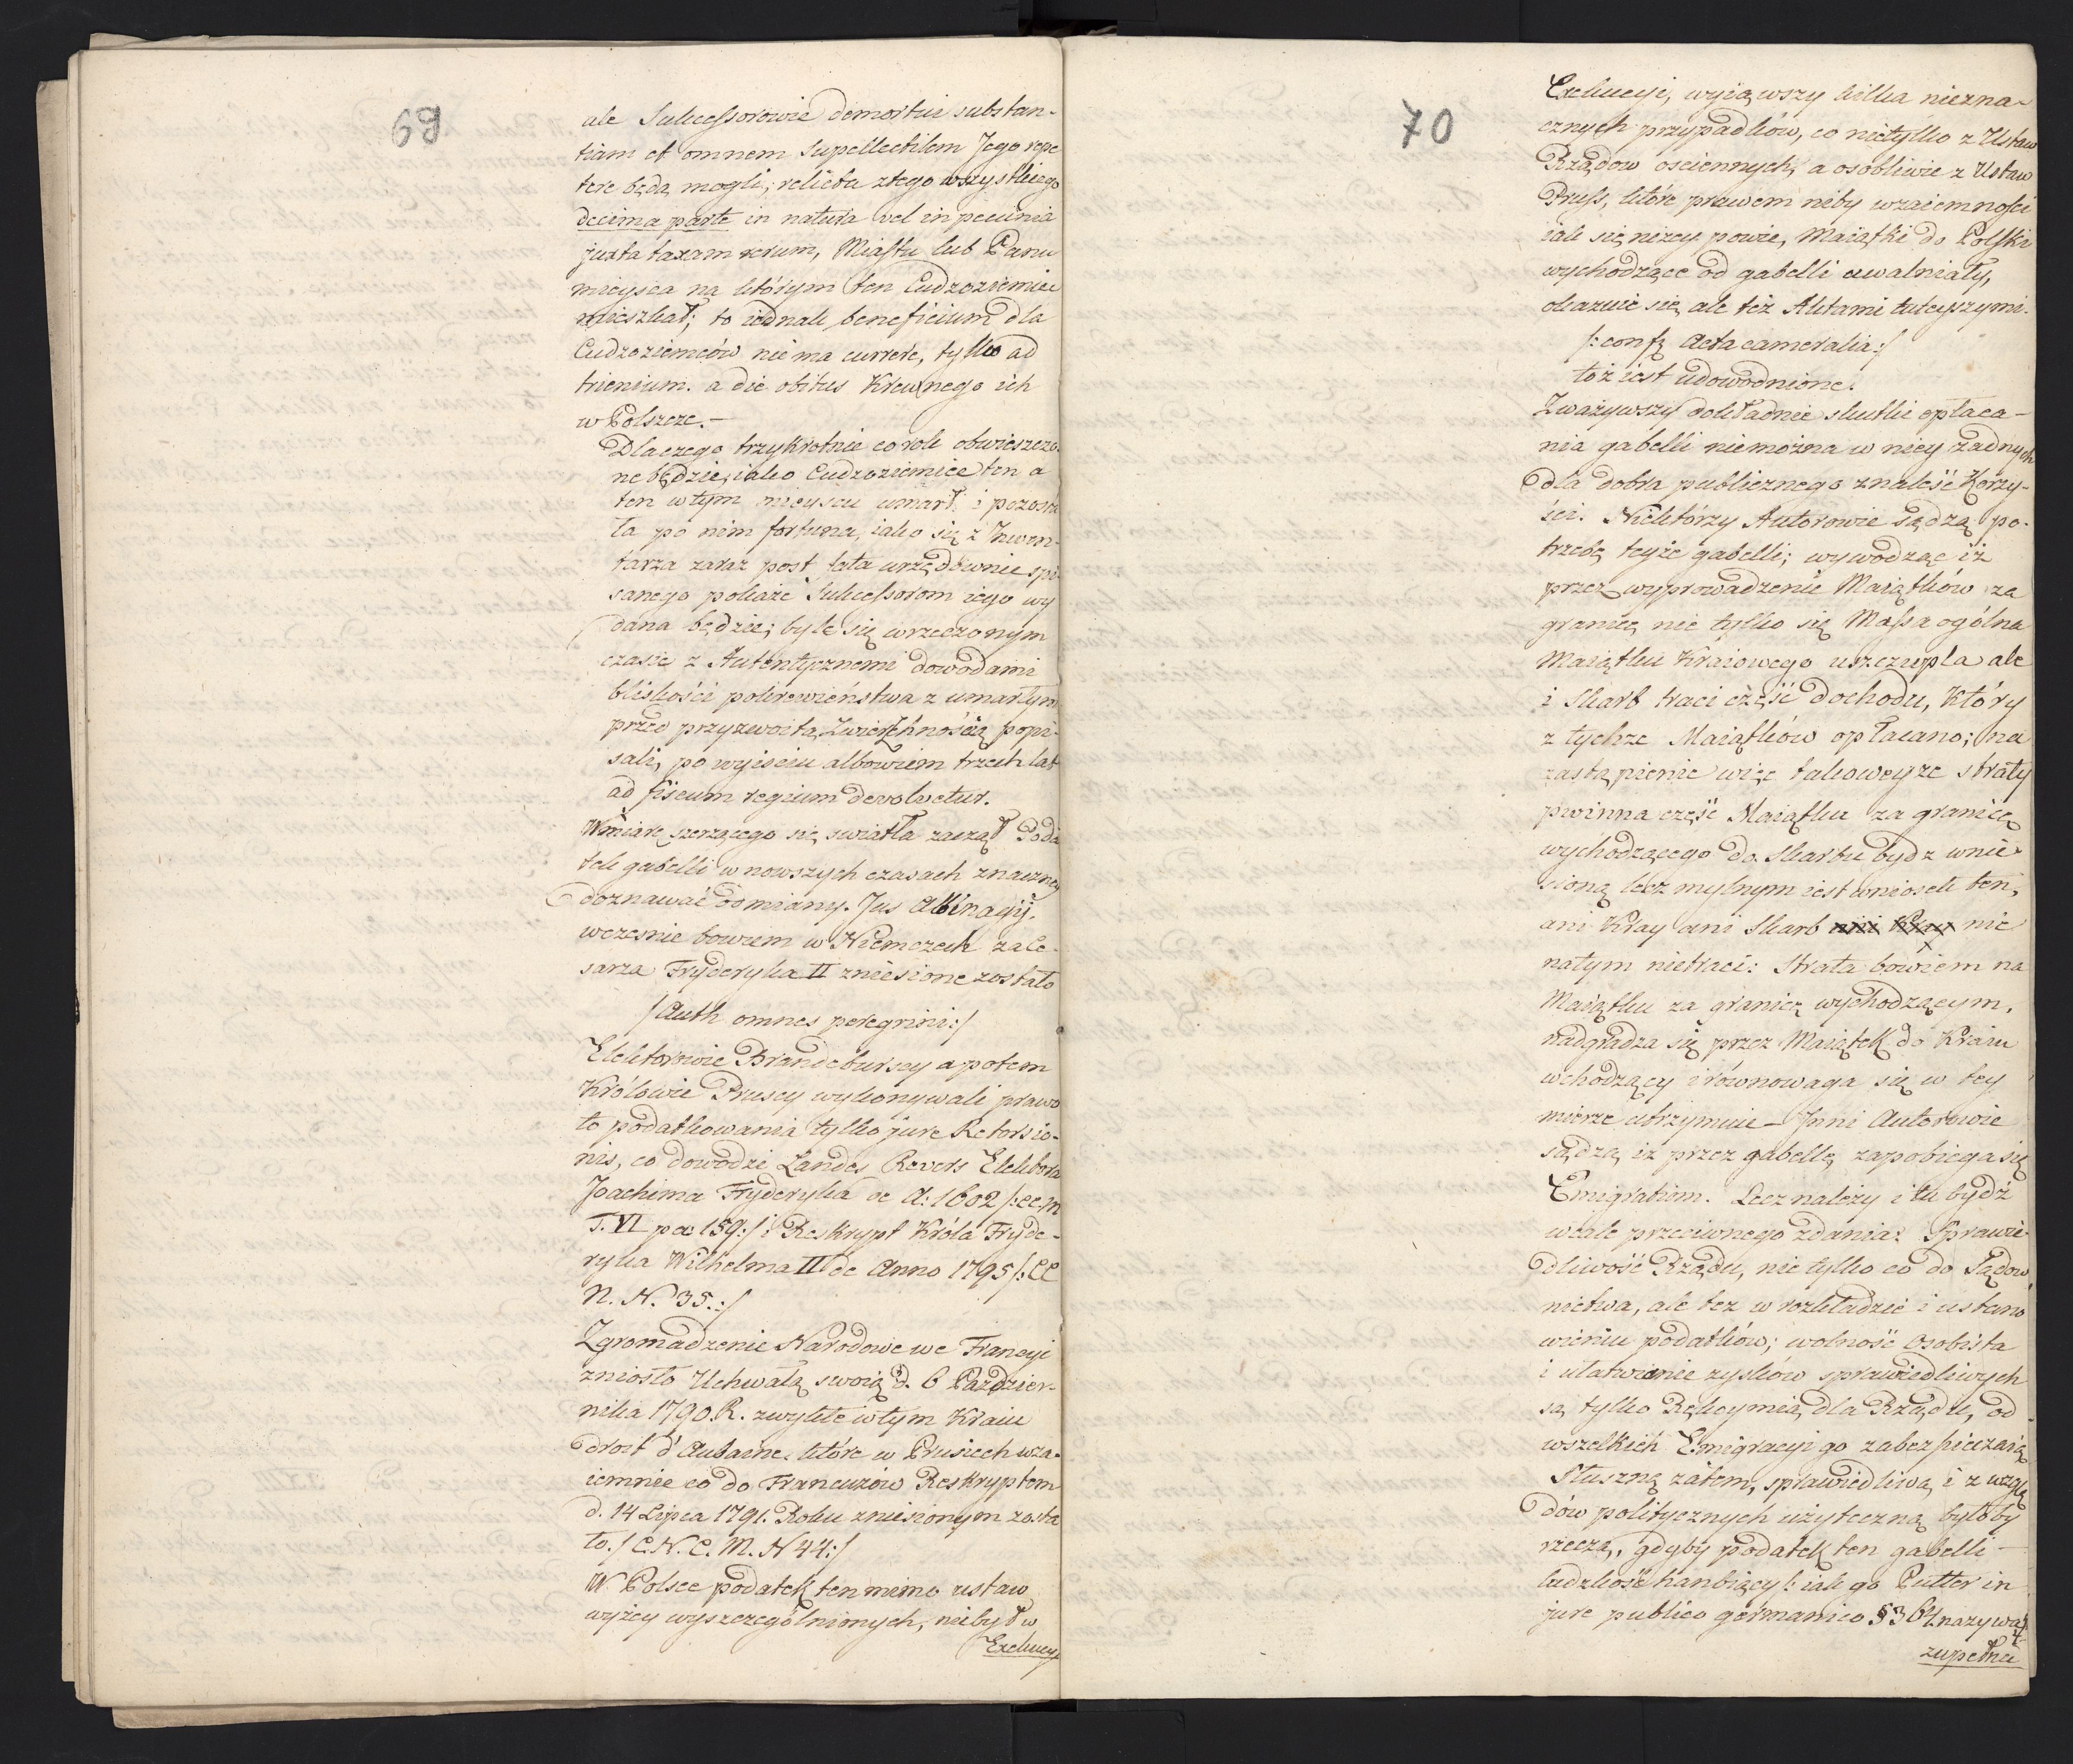 69
ale Sukcessorowie demortui substan-
tiam et omnem supellectilem Jego repe
tere będą mogli; relicta ztego wszystkiego
decima parte in natura vel in pecunia
juxta taxam rerum, Miastu lub Panu
mieysca na którym ten Cudzoziemiec
mieszkał; to iednak beneficium dla
Cudzoziemców nie ma currere, tylko ad
trienium a die obitus Krewnego ich
w Polszcze.-
Dlaczego trzykrotnie co rok obwieszczo-
ne będzie, iako Cudzoziemiec ten a
ten wtym mieyscu umarł i pozosta
ła po nim fortuna, iako się z Inwen-
tarza zaraz post fata urzędownie spi-
sanego pokaże Sukcessorom iego wy
dana będzie; byle się wrzeczonym
czasie z Autentycznemi dowodami
bliskości pokrewieństwa z umarłym
przed przyzwoitą Zwierzchnością popi-
sali, po wyiściu albowiem trzech lat
ad fiscum regium devolvetur.
Wmiarę szerzącego się swiatła zaczął Poda
tek gabelli w nowszych czasach znaczney
doznawać odmiany. Jus Albinagij
wczesnie bowiem w Niemczech za Ce-
sarza Fryderyka II zniesione zostało
/Auth omnes peregrini:/
Elektorowie Brandeburscy a potem
Królowie Pruscy wykonywali prawo
to podatkowania tylko jure Retorsio-
nis, co dowodzi Landes Revers Elektora
Joachima Fryderyka de A: 1602 /:CC.M
T. VI pa: 159:/ i Reskrypt Króla Fryde-
ryka Wilhelma II de Anno 1795 /:CC
N. N. 35.:/
Zgromadzenie Narodowe we Francyi
zniosło Uchwałą swoią d. 6 Paździer-
nika 1790. R. zwykłe wtym Kraiu
droit d'Aubaine, które w Prusiech wza-
iemnie co do Francuzów Reskryptem
d. 14 Lipca 1791. Roku zniesionym zosta
ło. /C.N.C.M. N 44:/
W Polsce podatek ten mimo ustaw
wyżey wyszczególnionych, niebył w
Exekucy
70
Exekucyi, wyiąwszy kilka niezna-
cznych przypadków, co nietylko z Ustaw
Rządow osciennych, a osobliwie z Ustaw
Pruss, które prawem niby wzaiemnosci
iak się niżey powie, Maiątki do Polski
wychodzące od gabelli uwalniały,
okazuie się, ale też Aktami tuteyszymi
/:conf; Acta cameralia:/
toż iest udowodnione.
Zważywszy dokładnie skutki opłaca-
nia gabelli niemożna w niey żadnych
dla dobra publicznego znaleść Korzy-
ści. Niektórzy Autorowie sądzą po-
trzebę teyże gabelli; wywodząc iż
przez wyprowadzenie Maiątków za
granicę nie tylko się Massa ogólna
Maiątku Kraiowego uszczupla ale
i Skarb traci część dochodu, Który
z tychże Maiątków opłacano; na
zastąpienie więc takoweyże straty
pwinna część Maiątku za granicę
wychodzącego do Skarbu bydz wnie-
sioną lecz mylnym iest wniosek ten,
ani Kray ani Skarb ani Kray nic
natym nietraci: Strata bowiem na
Maiątku za granicę wychodzącym,
nadgradza się przez Maiątek do Kraiu
wchodzący i równowaga się w tey
mierze utrzymuie - Inni Autorowie
sądzą, iż przez gabellę zapobiega się
Emigratiom. Lecz należy i tu bydź
wcale przeciwnego zdania: Sprawie-
dliwość Rządu, nie tylko co do Sądow
nictwa, ale też w rozkładzie i ustano
wieniu podatków; wolność Osobista
i ułatwienie zysków sprawiedliwych
są tylko Rękoymią dla Rządu, od
wszelkich Emigracyi go zabezpieczaią
Słuszną zatem, sprawiedliwą i z wzglę
dów politycznych użyteczną byłoby
rzeczą, gdyby podatek ten gabelli
ludzkość hanbiący /: iak go Putter in
jure publico germanico § 364 nazywa:/
zupełnie